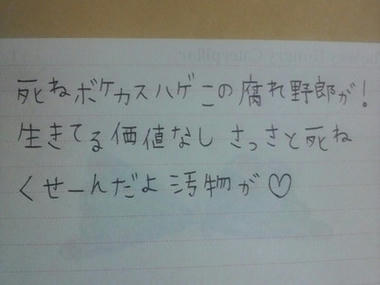 死ねボケカスハゲこの腐れ野郎が!
生きてる価値なし さっさと死ね
くせーんだよ 汚物が♡